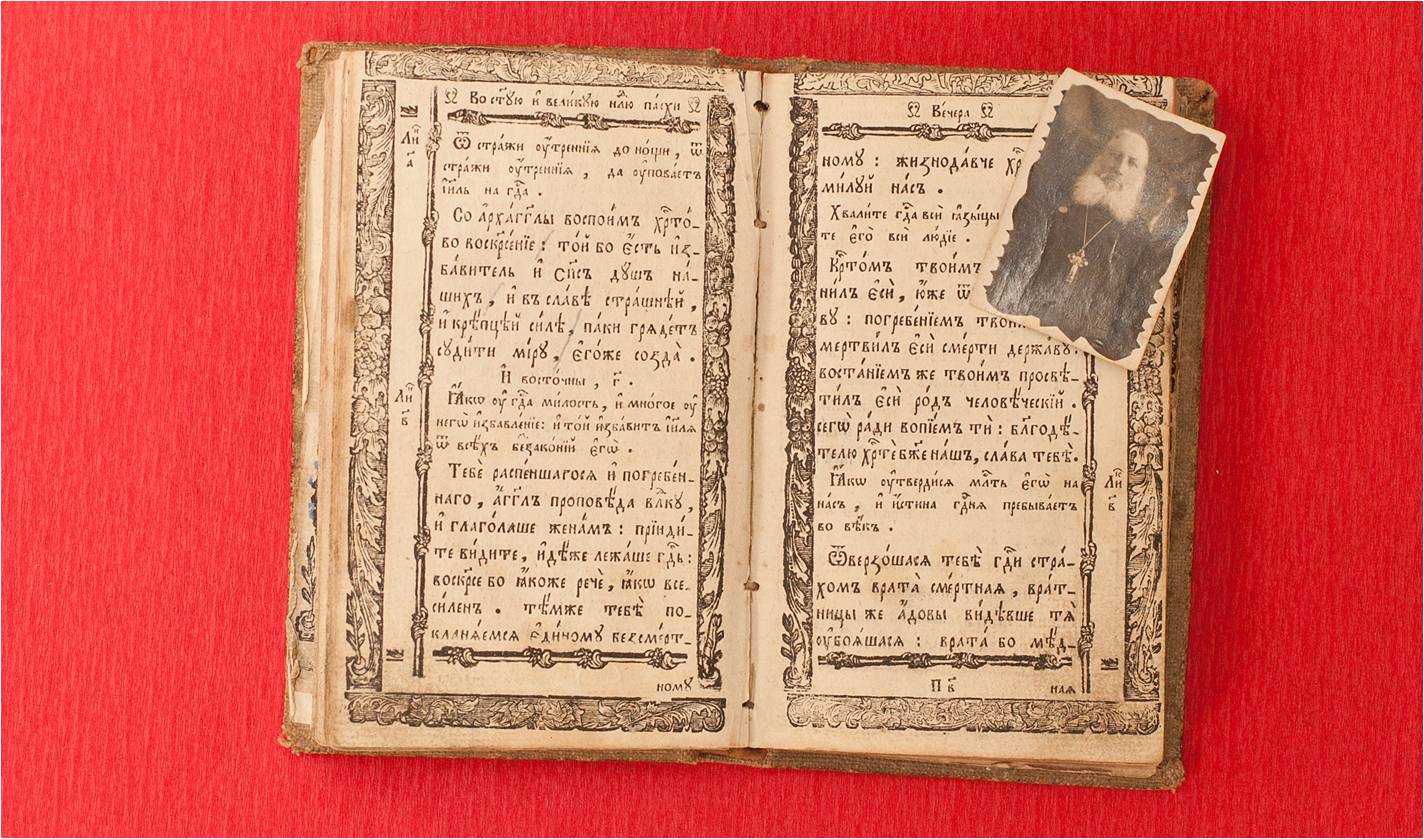 Во ст҃ую и҆ вели́кую нл҃ю па́схи
Ли́
а҃
Ѿ стра́жи ᲂу҆́треннїѧ до но́щи , ѿ
стра́жи ᲂу҆́треннїѧ , да ᲂу҆пова́етъ
і҆и҃ль на гд҇а .
Со а҆рха́гг҃лы воспои́мъ хрⷭ҇то́-
во воскрⷭ҇е́нїе : то́й бо є҆́сть и҆з-
ба́витель и҆ сп҃съ дꙋ́шъ на́-
шихъ , и҆ въ сла́вѣ стра́шнѣй ,
и҆ крѣ́пцѣй си́лѣ , па́ки грѧде́тъ
сꙋди́ти мі́рꙋ , є҆го́же созда̀ .
И҆ восто́чны , г҃ .
Ли́
в҃
Ꙗ҆́кѡ ᲂу҆ гдⷭ҇а ми́лость , и҆ мно́гое ᲂу҆
негѡ̀ и҆збавле́нїе : и҆ то́й и҆зба́витъ і҆и҃лѧ
ѿ всѣ́хъ беззако́нїй є҆гѡ̀ .
Тебѐ распе́ншагосѧ и҆ погребе́н-
наго , а҆́гг҃лъ проповѣ́да влⷣкꙋ ,
и҆ глаго́лаше жена́мъ : прїиди́-
те ви́дите , и҆дѣ́же лежа́ше гдⷭ҇ь :
воскрⷭ҇е бо ꙗ҆́коже речѐ , ꙗ҆́кѡ все-
си́ленъ . тѣ́мже тебѣ̀ по-
кланѧ́емсѧ є҆ди́номꙋ безсме́рт-
номꙋ
Ве́чера
номꙋ : жизнода́вче хрⷭ҇
ми́лꙋй на́съ .
Хвали́те гдⷭ҇а всѝ ꙗ҆зы́цы
те є҆го̀ всѝ лю́дїе .
Крⷭ҇то́мъ твои́мъ
ни́лъ є҆сѝ , ю҆́же ѿ
вꙋ : погребе́нїемъ твои́
мертви́лъ є҆сѝ сме́рти держа́вꙋ :
воста́нїемъ же твои́мъ просвѣ-
ти́лъ є҆сѝ ро́дъ человѣ́ческїй .
сегѡ̀ ра́ди вопїе́мъ тѝ : блгⷣодѣ́-
телю хрⷭ҇тѐ бж҃е на́шъ , сла́ва тебѣ̀ .
Ли́
в҃
Ꙗ҆́кѡ ᲂу҆тверди́сѧ млⷭ҇ть є҆гѡ̀ на
на́съ , и҆ и҆́стина гдⷭ҇нѧ пребыва́етъ
во вѣ́къ .
Ѿверзо́шасѧ тебѣ̀ гдⷭ҇и стра́-
хомъ врата̀ сме́ртнаѧ , вра́т-
ницы же а҆́довы ви́дѣвше тѧ̀
ᲂу҆боѧ́шасѧ : врата́ бо мѣ́д-
П в҃
наѧ